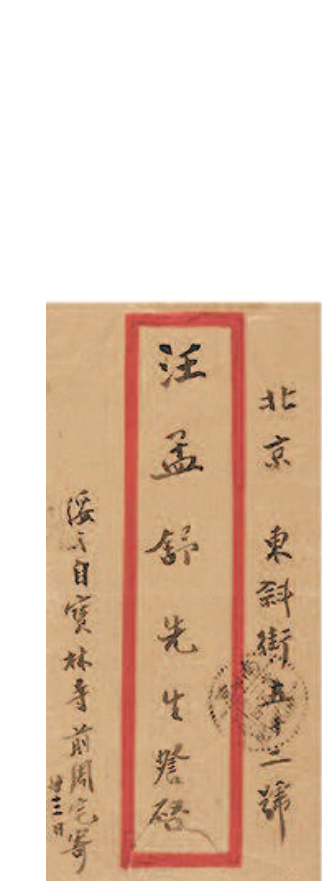 北京 東斜街五十二號
汪孟舒先生詧啟
自寶林寺前周宅寄
廿二日